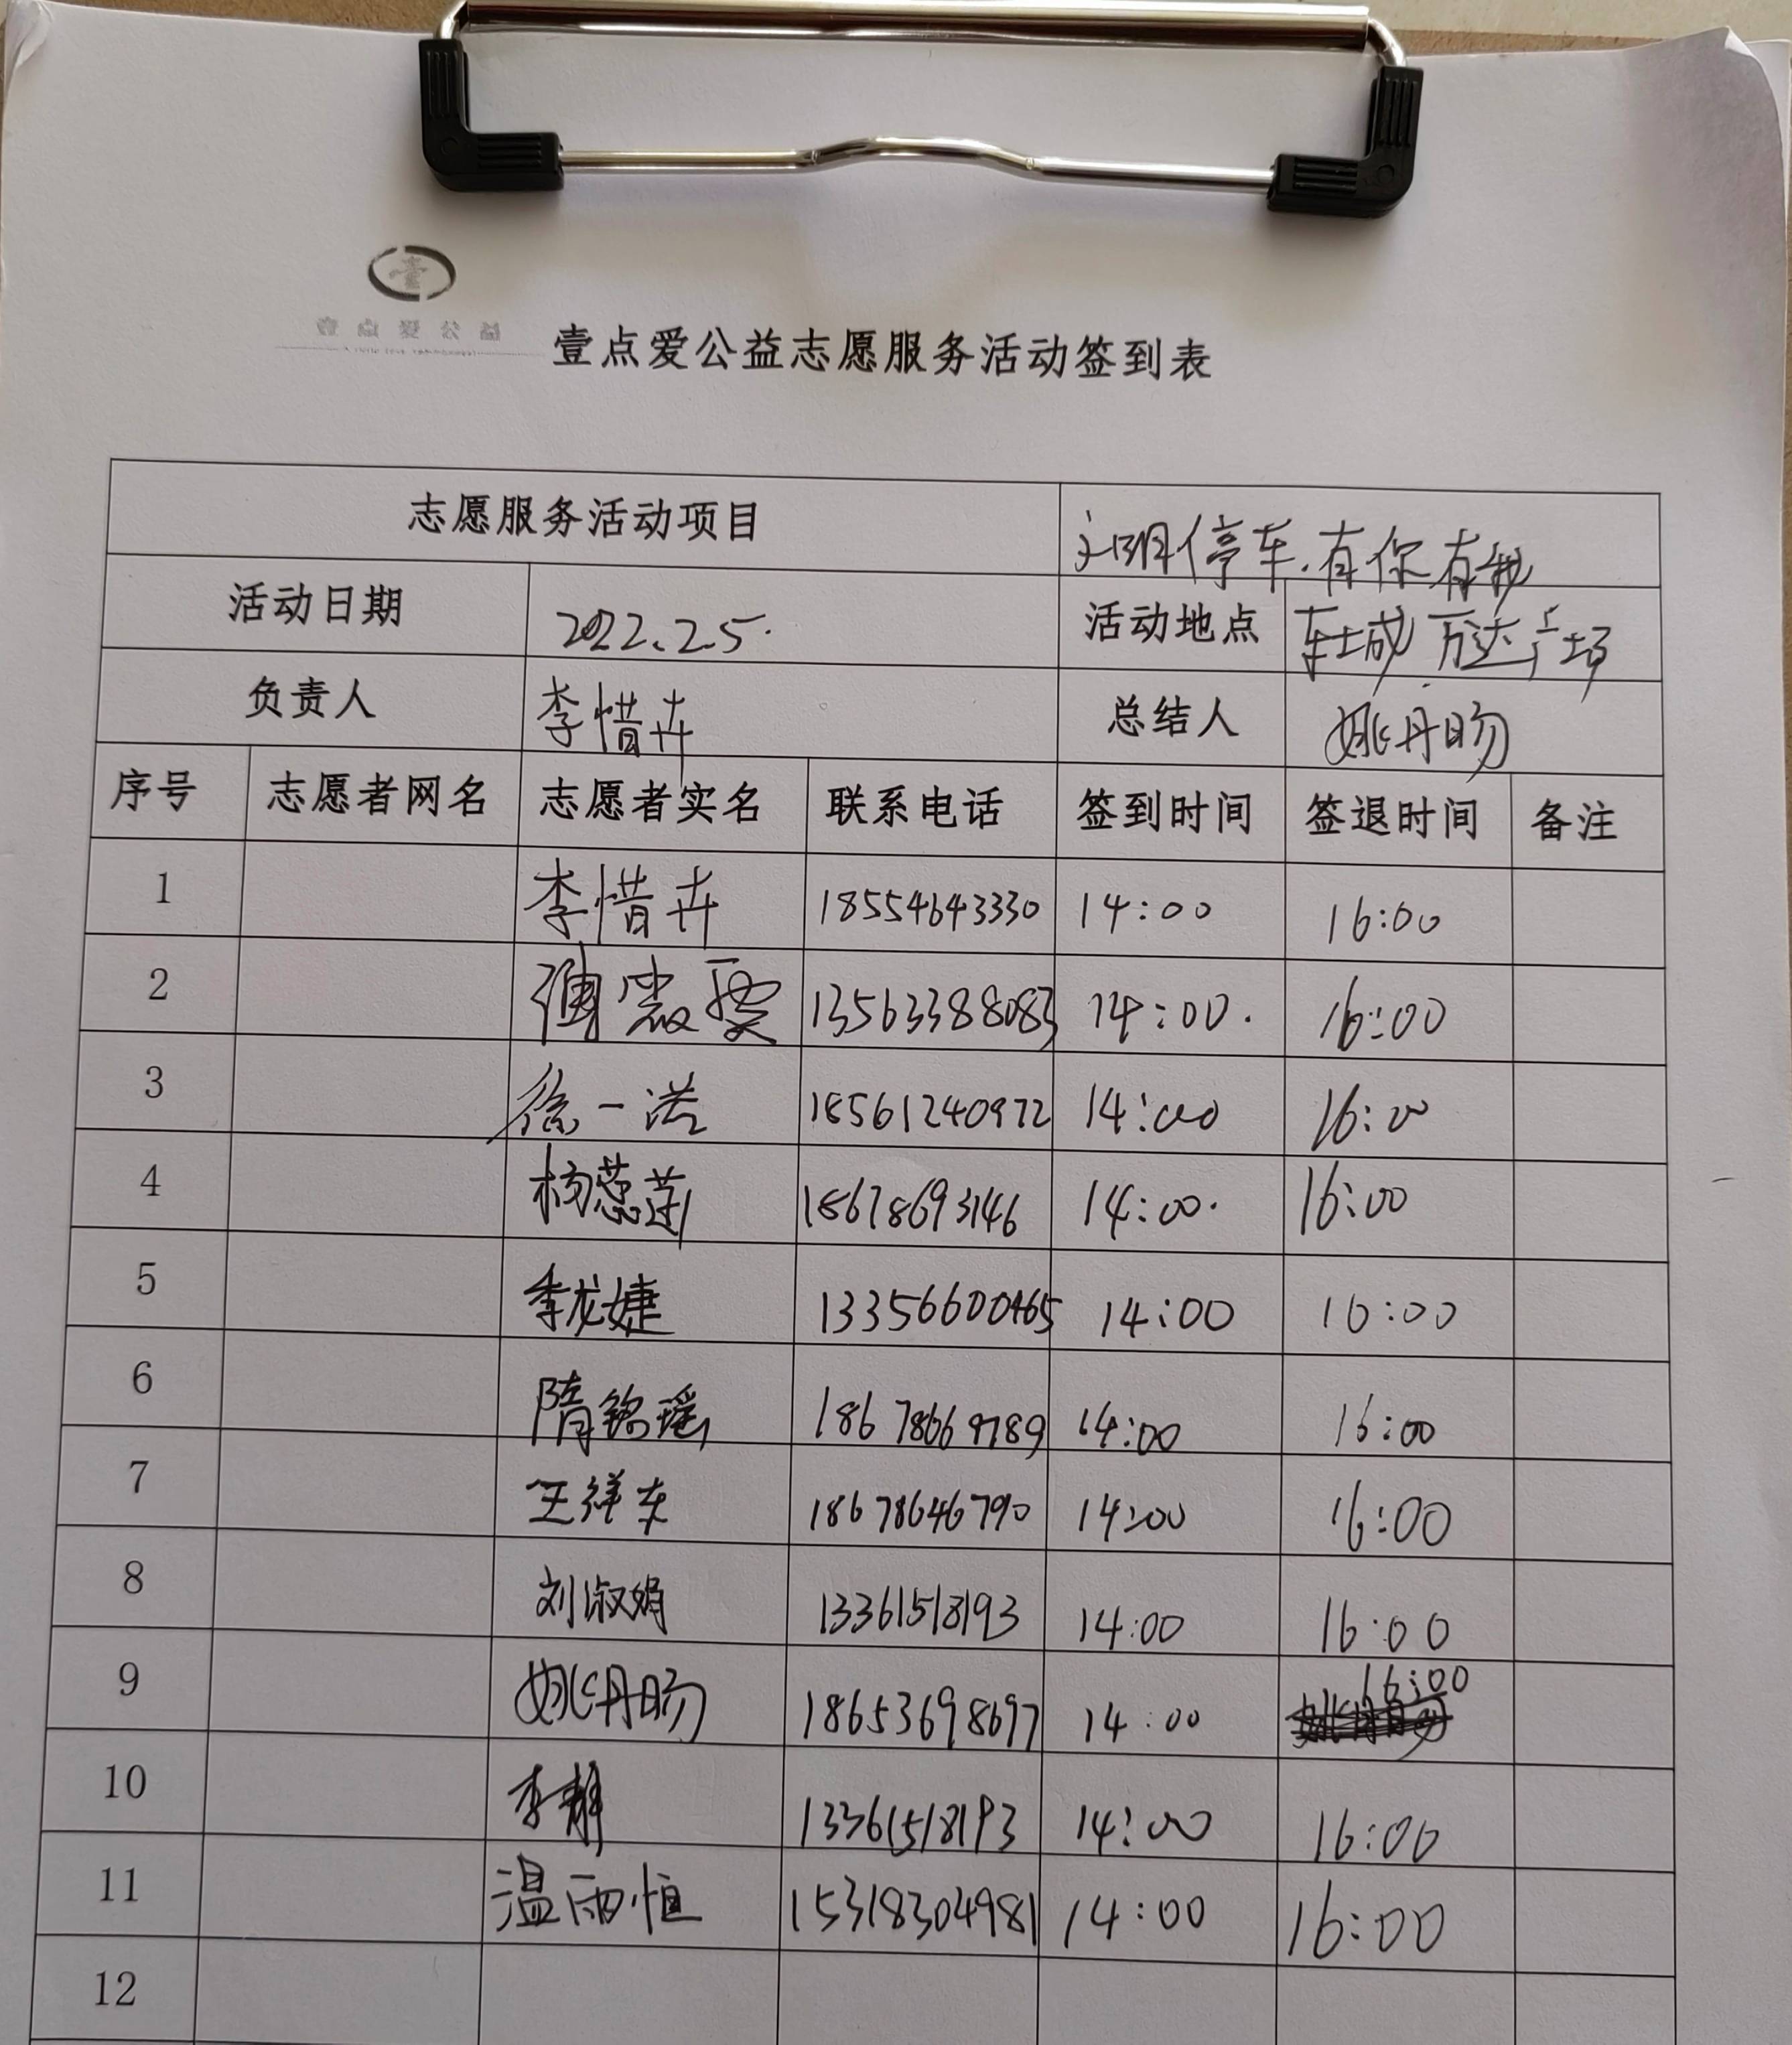 壹点爱公益
壹点爱公益志愿服务活动签到表
志愿服务活动项目 文明停车.有你有我
活动日期 2022.2.5. 活动地点 车城万达广场
负责人 李惜卉 总结人 姚丹旸
序号 志愿者网名 志愿者实名 联系电话 签到时间 签退时间 备注
1 李惜卉 18554643330 14:00 16:00
2 13563388083 14:00. 16:00
3 徐一诺 18561240972 14:00 16:00
4 杨蕊莲 18678693146 14:00. 16:00
5 季龙婕 13356600465 14:00 16:00
6 隋铭瑶 18678669789 14:00 16:00
7 王祥东 18678646790 14:00 16:00
8 刘淑娟 13361518193 14:00 16:00
9 姚丹旸 18653698697 14:00 16:00
10 李静 13361518193 14:00 16:00
11 温雨恒 15318304981 14:00 16:00
12